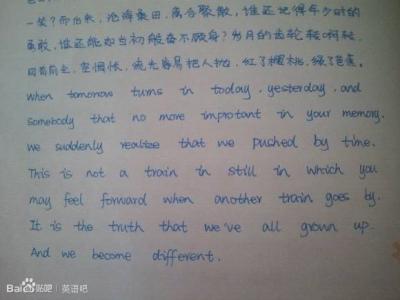 一笑?而后来,沧海桑田,离合聚散,谁还记得年少时的
勇敢,谁还能如当初般奋不顾身?岁月的齿轮轻呵轻,
回首前尘,空惆怅,流光容易把人抛,红了樱桃,绿了芭蕉。
When tomorrow turns in today, yesterday, and
Somebody that no more improtant in your memory.
we suddenly realize that we pushed by time.
This is not a train in still in which you
may feel forward when another train goes by.
It is the truth that we've all grown up.
And we become different.
Bai 贴吧 | 英语吧